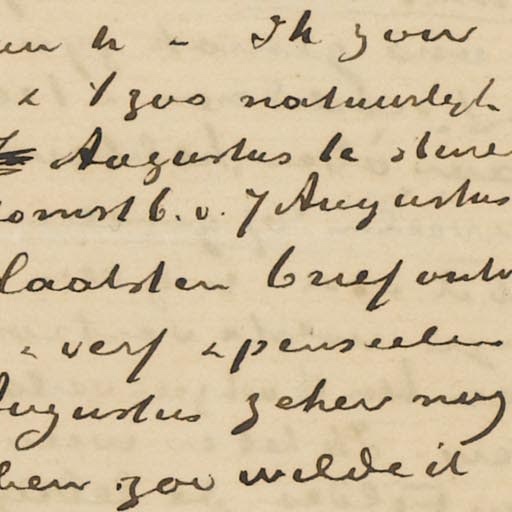 Ik zou
& 't zoo natuurlijk
Augustus te sture
komst b.v. 7 Augustus
laatsten brief ontv
& verf & penseelen
Augustus zeker nog
ben zoo wilde it